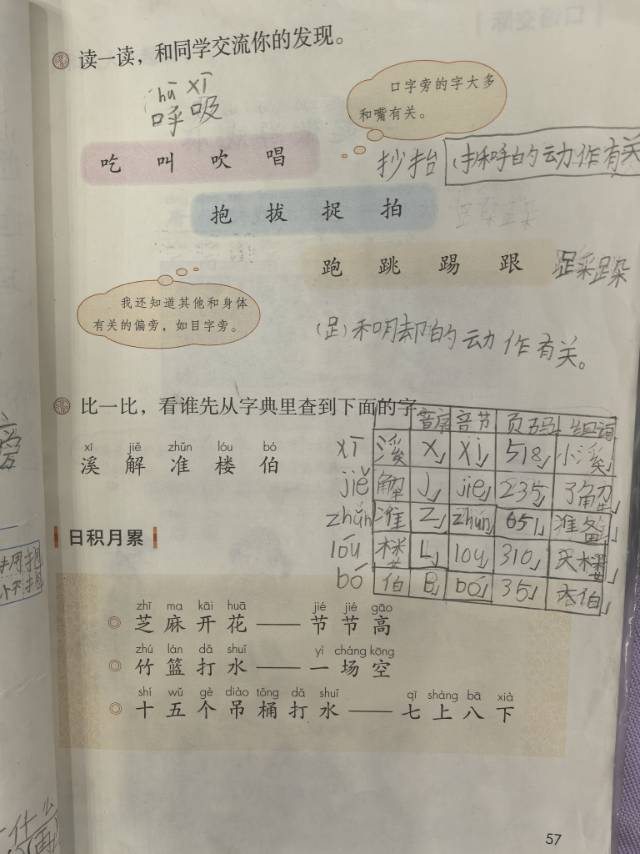 读一读，和同学交流你的发现。
hū xī
呼吸
口字旁的字大多
和嘴有关。
吃 叫 吹 唱
抄 抬
和手的动作有关
抱 拔 捉 拍
跑 跳 踢 跟
踩 跺
我还知道其他和身体
有关的偏旁，如目字旁。
(足)和脚的动作有关。
比一比，看谁先从字典里查到下面的字。
音序 音节 页码 组词
xī jiě zhǔn lóu bó
溪 解 准 楼 伯
xī 溪 X xī 518 小溪
jiě 解 J jiě 235 了解
zhǔn 准 Z zhǔn 651 准备
lóu 楼 L lóu 310 天楼
bó 伯 B bó 35 大伯
日积月累
zhī ma kāi huā jié jié gāo
芝麻开花——节节高
zhú lán dǎ shuǐ yì cháng kōng
竹篮打水——一场空
shí wǔ gè diào tǒng dǎ shuǐ qī shàng bā xià
十五个吊桶打水——七上八下
57